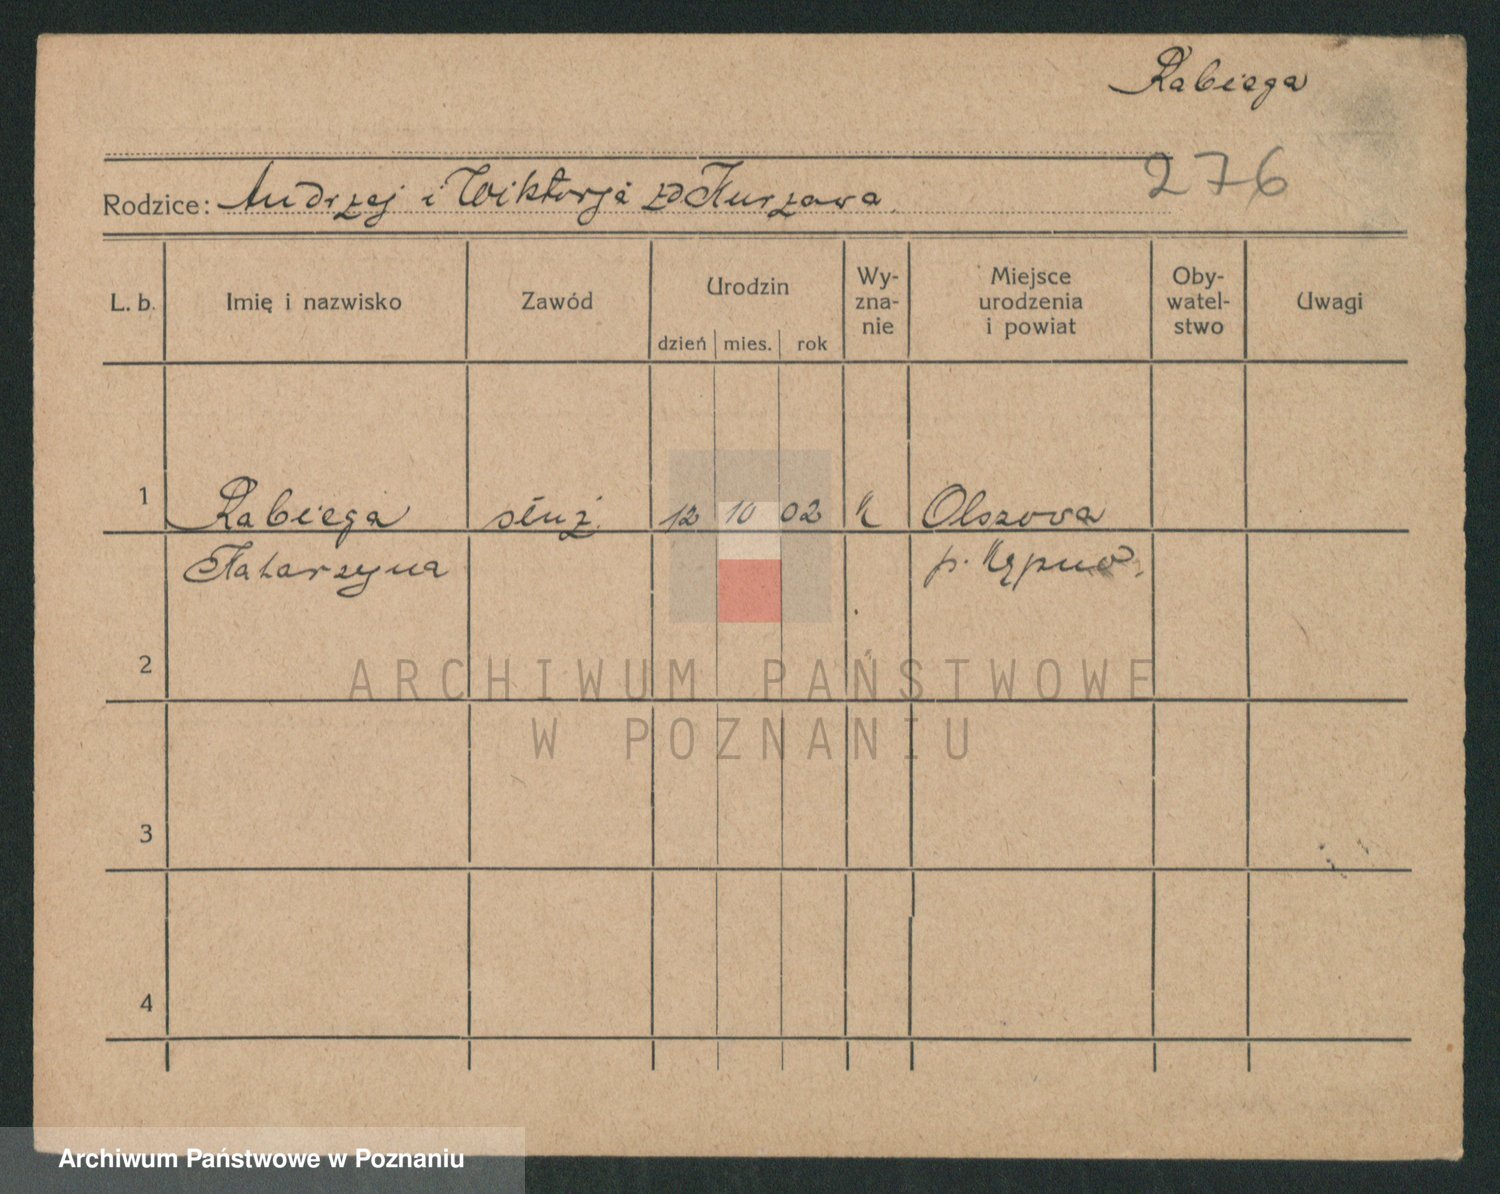 Rabiega
276
Rodzice: Andrzej i Wiktorja zd Kurzawa
L. b. Imię i nazwisko Zawód Urodzin dzień mies. rok Wy-zna-nie Miejsce urodzenia i powiat Oby-watel-stwo Uwagi
1 Rabiega służ. 12 10 02 k Olszova
Katarzyna p. Kępno.
2
ARCHIWUM PAŃSTWOWE
W POZNANIU
3
4
Archiwum Państwowe w Poznaniu